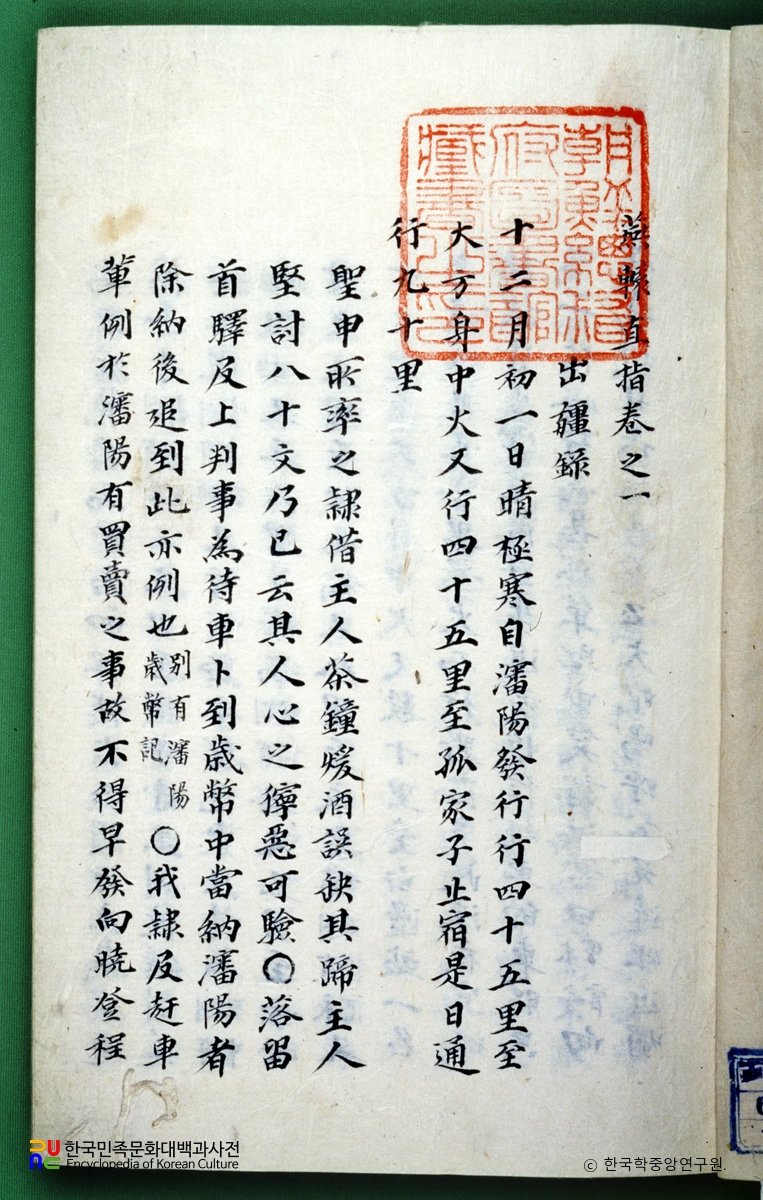 燕轅直指卷之一
出疆錄
十二月初一日晴極寒自瀋陽發行行四十五里至
大方身中火又行四十五里至孤家子止宿是日通
行九十里
聖申所率之隸借主人茶鐘煖酒誤缺其蹄主人
堅討八十文乃已云其人心之獰惡可驗〇落留
首驛及上判事為待車卜到歲幣中當納瀋陽者
除納後追到此亦例也別有瀋陽歲幣記〇我隸及赶車
輩例於瀋陽有買賣之事故不得早發向曉登程
朝鮮總督府圖書館藏書之印
한국민족문화대백과사전
Encyclopedia of Korean Culture
© 한국학중앙연구원.